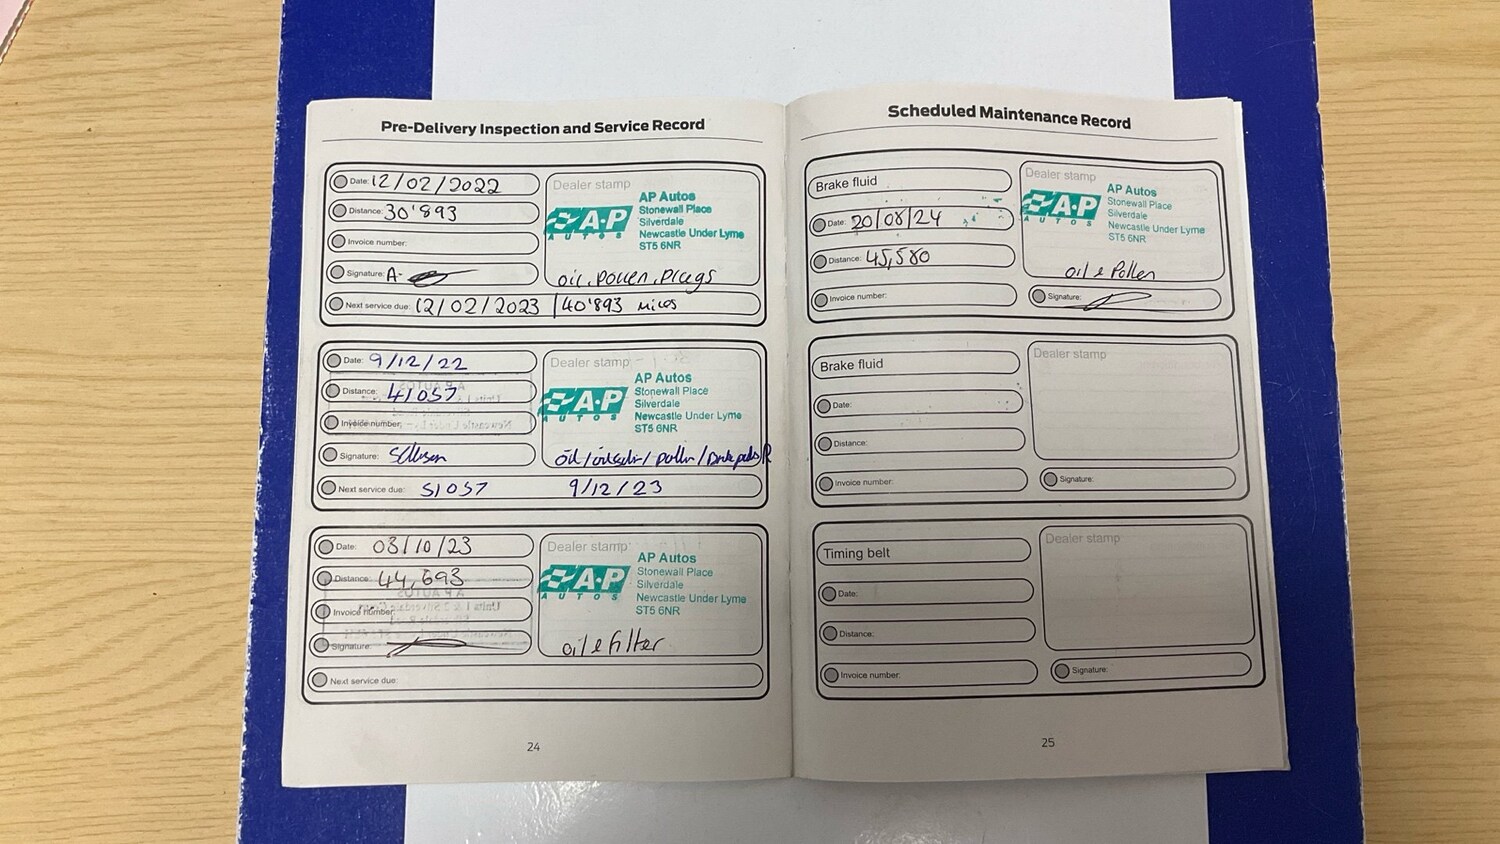 Pre-Delivery Inspection and Service Record
Date: 12/02/2022
Distance: 30'893
Invoice number:
Signature: A-
Next service due: 12/02/2023 | 40'893 miles
Dealer stamp
A·P
AUTOS
AP Autos
Stonewall Place
Silverdale
Newcastle Under Lyme
ST5 6NR
oil, pollen, plugs
Date: 9/12/22
Distance: 41057
Invoice number:
Signature:
Next service due: 51057 9/12/23
Dealer stamp
A·P
AUTOS
AP Autos
Stonewall Place
Silverdale
Newcastle Under Lyme
ST5 6NR
oil/ /pollen/
Date: 03/10/23
Distance: 44,693
Invoice number:
Signature:
Next service due:
Dealer stamp
A·P
AUTOS
AP Autos
Stonewall Place
Silverdale
Newcastle Under Lyme
ST5 6NR
oil & filter
24
Scheduled Maintenance Record
Brake fluid
Date: 20/08/24
Distance: 45,580
Invoice number:
Dealer stamp
A·P
AUTOS
AP Autos
Stonewall Place
Silverdale
Newcastle Under Lyme
ST5 6NR
oil & Pollen
Signature:
Brake fluid
Date:
Distance:
Invoice number:
Dealer stamp
Signature:
Timing belt
Date:
Distance:
Invoice number:
Dealer stamp
Signature:
25